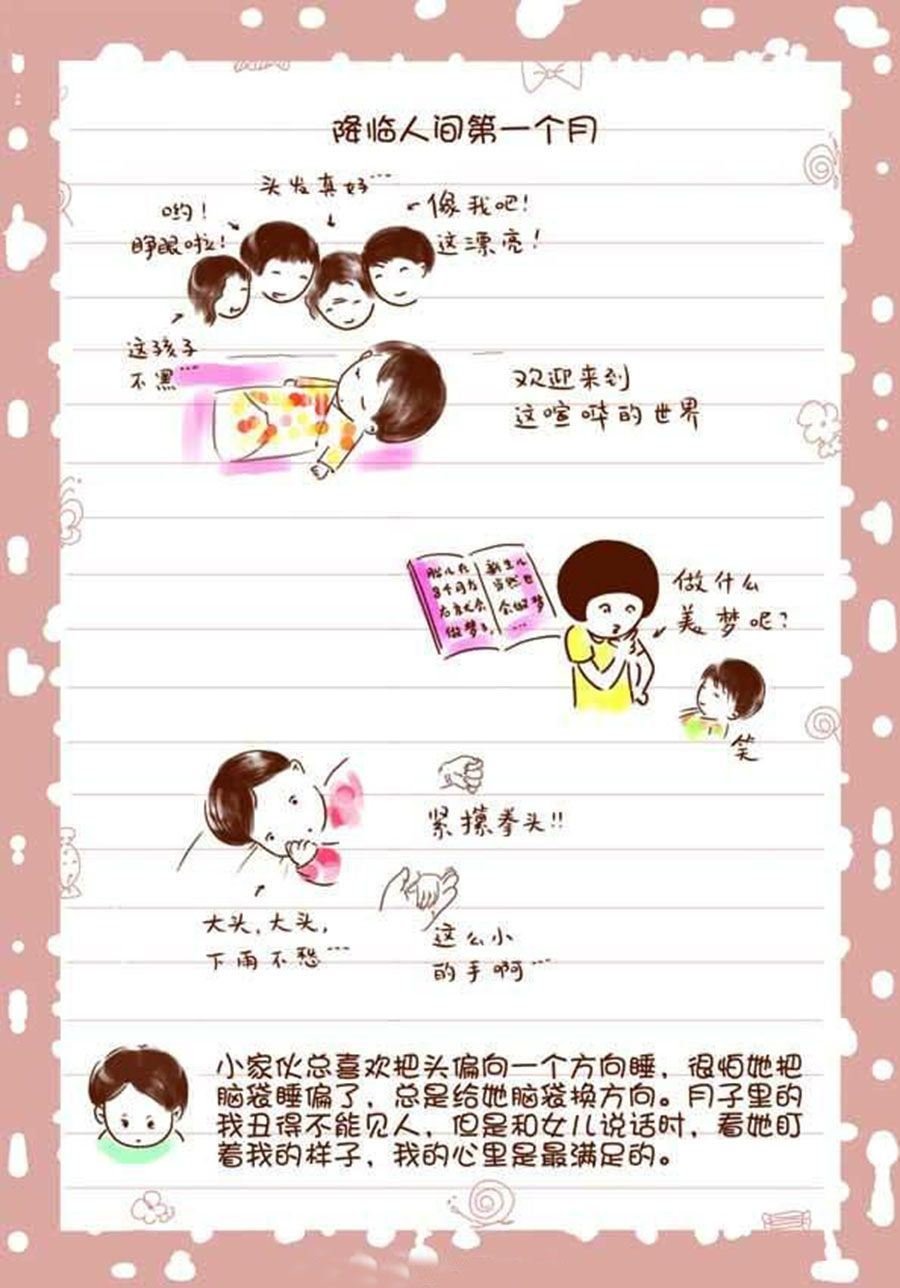 降临人间第一个月
头发真好…
哟！
睁眼啦！
像我吧！
这漂亮！
这孩子
不黑…
欢迎来到
这喧哗的世界
胎儿在
8个月左
右就会
做梦了，
新生儿
当然也
会做梦
…
做什么
美梦呢？
笑
紧攥拳头！！
大头，大头，
下雨不愁…
这么小
的手啊…
小家伙总喜欢把头偏向一个方向睡，很怕她把
脑袋睡偏了，总是给她脑袋换方向。月子里的
我丑得不能见人，但是和女儿说话时，看她盯
着我的样子，我的心里是最满足的。